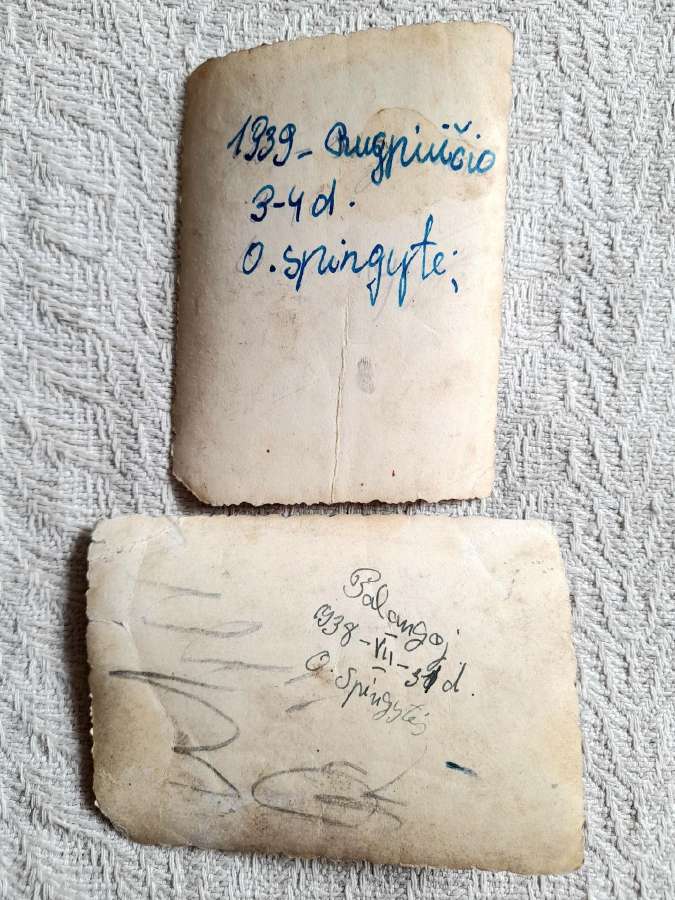 1939 - Rugpiučio
3-4 d.
O. Spingytė;
Palangoj
1938-VII-31 d.
O. Spingytės